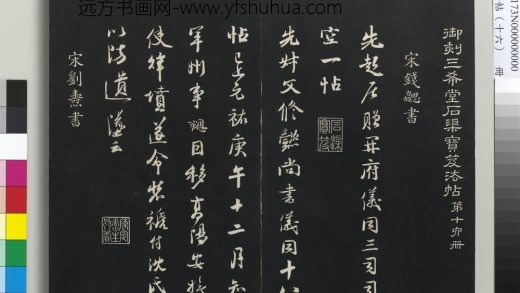 远方书画网-www.yfshuhua.com
帖（十六） 册
御刻三希堂石渠寶笈法帖 第十冊
宋錢勰書
先起居贈開府儀同三司司
空一帖
先叔父修懿尚書儀同十八
帖元祐庚午十二月知
軍州事勰自移高陽安撫
使墳遂令裝褫付沈氏
以防遺云
宋劉燾書